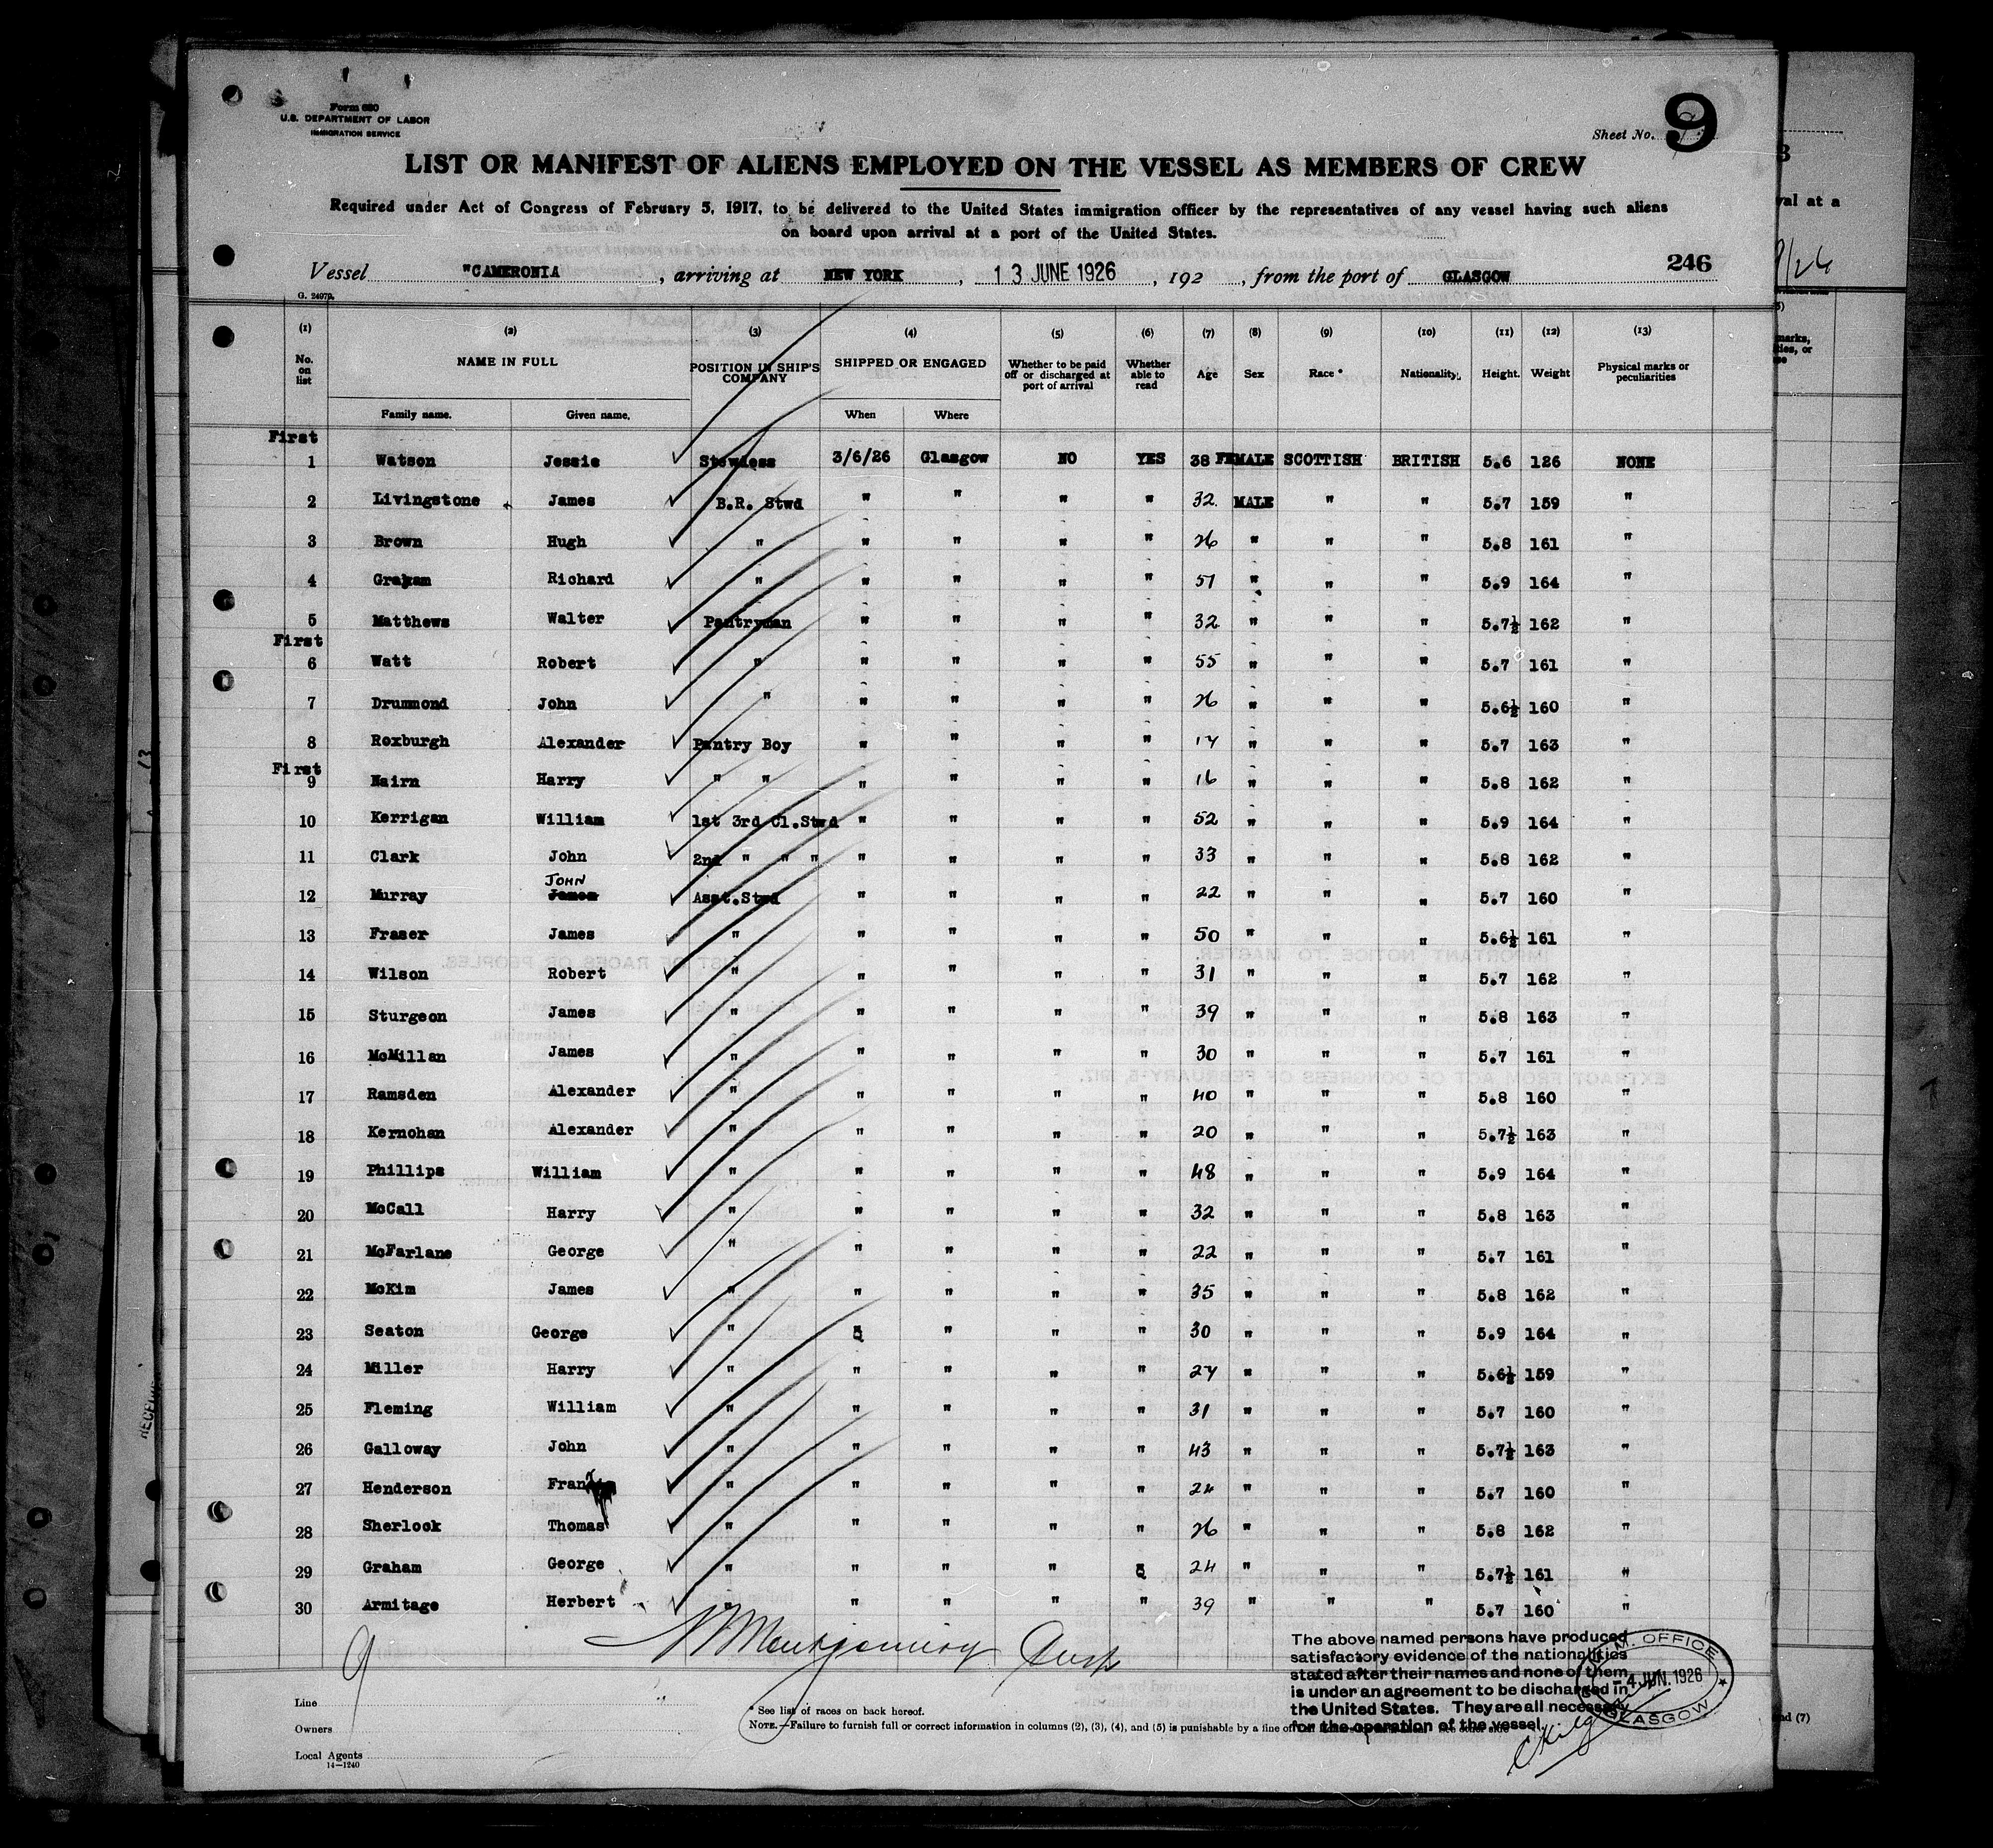 Form 680
U.S. DEPARTMENT OF LABOR
IMMIGRATION SERVICE
Sheet No. 9
LIST OR MANIFEST OF ALIENS EMPLOYED ON THE VESSEL AS MEMBERS OF CREW
Required under Act of Congress of February 5, 1917, to be delivered to the United States immigration officer by the representatives of any vessel having such aliens
on board upon arrival at a port of the United States.
246
Vessel "CAMERONIA , arriving at NEW YORK , 13 JUNE 1926 , 192 , from the port of GLASGOW
G. 24979.
(1) (2) (3) (4) (5) (6) (7) (8) (9) (10) (11) (12) (13)
No. on list NAME IN FULL POSITION IN SHIP'S COMPANY SHIPPED OR ENGAGED Whether to be paid off or discharged at port of arrival Whether able to read Age Sex Race * Nationality. Height. Weight Physical marks or peculiarities
Family name. Given name. When Where
First
1 Watson Jessie Stewdess 3/6/26 Glasgow NO YES 38 FEMALE SCOTTISH BRITISH 5.6 126 NONE
2 Livingstone James B.R. Stwd " " " " 32 MALE " " 5.7 159 "
3 Brown Hugh " " " " " 26 " " " 5.8 161 "
4 Graham Richard " " " " " 51 " " " 5.9 164 "
5 Matthews Walter Pantryman " " " " 32 " " " 5.7½ 162 "
First
6 Watt Robert " " " " " 55 " " " 5.7 161 "
7 Drummond John " " " " " 26 " " " 5.6½ 160 "
8 Roxburgh Alexander Pantry Boy " " " " 17 " " " 5.7 163 "
First
9 Nairn Harry " " " " " " 16 " " " 5.8 162 "
10 Kerrigan William 1st 3rd Cl.Stwd " " " " 52 " " " 5.9 164 "
11 Clark John 2nd " " " " " " " 33 " " " 5.8 162 "
JOHN
12 Murray James Asst.Stwd " " " " 22 " " " 5.7 160 "
13 Fraser James " " " " " 50 " " " 5.6½ 161 "
14 Wilson Robert " " " " " 31 " " " 5.7 162 "
15 Sturgeon James " " " " " 39 " " " 5.8 163 "
16 McMillan James " " " " " 30 " " " 5.7 161 "
17 Ramsden Alexander " " " " " 40 " " " 5.8 160 "
18 Kernohan Alexander " " " " " 20 " " " 5.7½ 163 "
19 Phillips William " " " " " 48 " " " 5.9 164 "
20 McCall Harry " " " " " 32 " " " 5.8 163 "
21 McFarlane George " " " " " 22 " " " 5.7 161 "
22 McKim James " " " " " 35 " " " 5.8 162 "
23 Seaton George " " " " " 30 " " " 5.9 164 "
24 Miller Harry " " " " " 27 " " " 5.6½ 159 "
25 Fleming William " " " " " 31 " " " 5.7 160 "
26 Galloway John " " " " " 43 " " " 5.7½ 163 "
27 Henderson " " " " " 24 " " " 5.7 160 "
28 Sherlock Thomas " " " " " 26 " " " 5.8 162 "
29 Graham George " " " " " 24 " " " 5.7½ 161 "
30 Armitage Herbert " " " " " 39 " " " 5.7 160 "
9 Montgomery
The above named persons have produced
satisfactory evidence of the nationalities
stated after their names and none of them
is under an agreement to be discharged in
the United States. They are all necessary
for the operation of the vessel.
OFFICE
4 JUN. 1926
GLASGOW
Line
Owners
Local Agents
14—1240
* See list of races on back hereof.
NOTE.—Failure to furnish full or correct information in columns (2), (3), (4), and (5) is punishable by a fine of